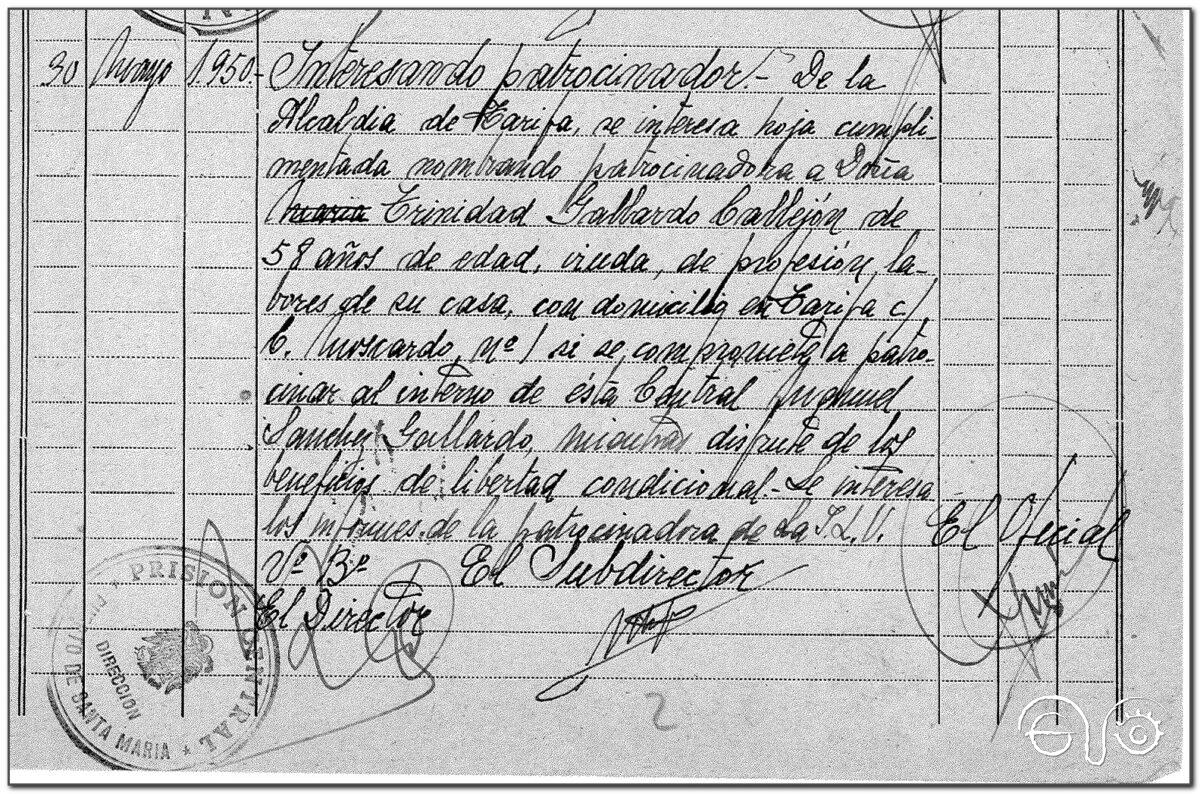 30 Mayo 1.950.- Interesando patrocinador.- De la
Alcaldia de Tarifa, se interesa hoja cumpli-
mentada nombrando patrocinadora a Doña
Maria Trinidad Gallardo Callejón de
58 años de edad, viuda, de profesión, la-
bores de su casa, con domicilio en Tarifa c/
C. Moscardo, nº 1 si se compromete a patro-
cinar al interno de ésta Central Manuel
Sanchez Gallardo, mientras disfrute de los
beneficios de libertad condicional.- Se interesa
los informes de la patrocinadora de la J.L.V.
El Oficial
Vº Bº El Subdirector
El Director
PRISION CENTRAL
DIRECCION
PUERTO DE SANTA MARIA
2